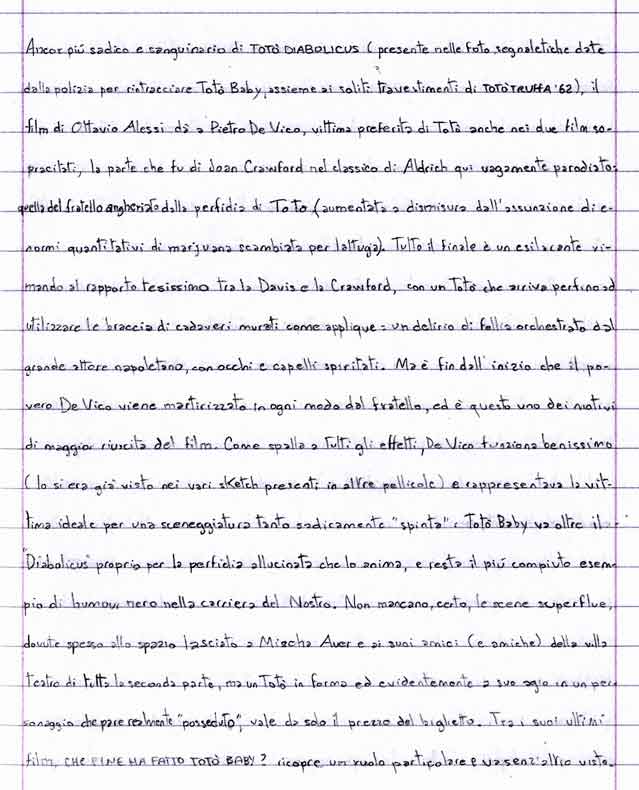 Ancor più sadico e sanguinario di TOTÒ DIABOLICUS (presente nelle foto segnaletiche date
dalla polizia per rintracciare Totò Baby, assieme ai soliti travestimenti di TOTÒTRUFFA '62), il
film di Ottavio Alessi dà a Pietro De Vico, vittima preferita di Totò anche nei due film so-
pracitati, la parte che fu di Joan Crawford nel classico di Aldrich qui vagamente parodiato:
quella del fratello angheriato dalla perfidia di Totò (aumentata a dismisura dall'assunzione di e-
normi quantitativi di marijuana scambiata per lattuga). Tutto il finale è un esilarante ri-
mando al rapporto tesissimo tra la Davis e la Crawford, con un Totò che arriva perfino ad
utilizzare le braccia di cadaveri murati come applique: un delirio di follia orchestrato dal
grande attore napoletano, con occhi e capelli spiritati. Ma è fin dall'inizio che il po-
vero De Vico viene martirizzato in ogni modo dal fratello, ed è questo uno dei motivi
di maggior riuscita del film. Come spalla a tutti gli effetti, De Vico funziona benissimo
(lo si era già visto nei vari sketch presenti in altre pellicole) e rappresentava la vit-
tima ideale per una sceneggiatura tanto sadicamente "spinta". Totò Baby va oltre il
"Diabolicus" proprio per la perfidia allucinata che lo anima, e resta il più compiuto esem-
pio di humour nero nella carriera del Nostro. Non mancano, certo, le scene superflue,
dovute spesso allo spazio lasciato a Mischa Auer e ai suoi amici (e amiche) della villa
teatro di tutta la seconda parte, ma un Totò in forma ed evidentemente a suo agio in un per-
sonaggio che pare realmente "posseduto", vale da solo il prezzo del biglietto. Tra i suoi ultimi
film, CHE FINE HA FATTO TOTÒ BABY? ricopre un ruolo particolare e va senz'altro visto.